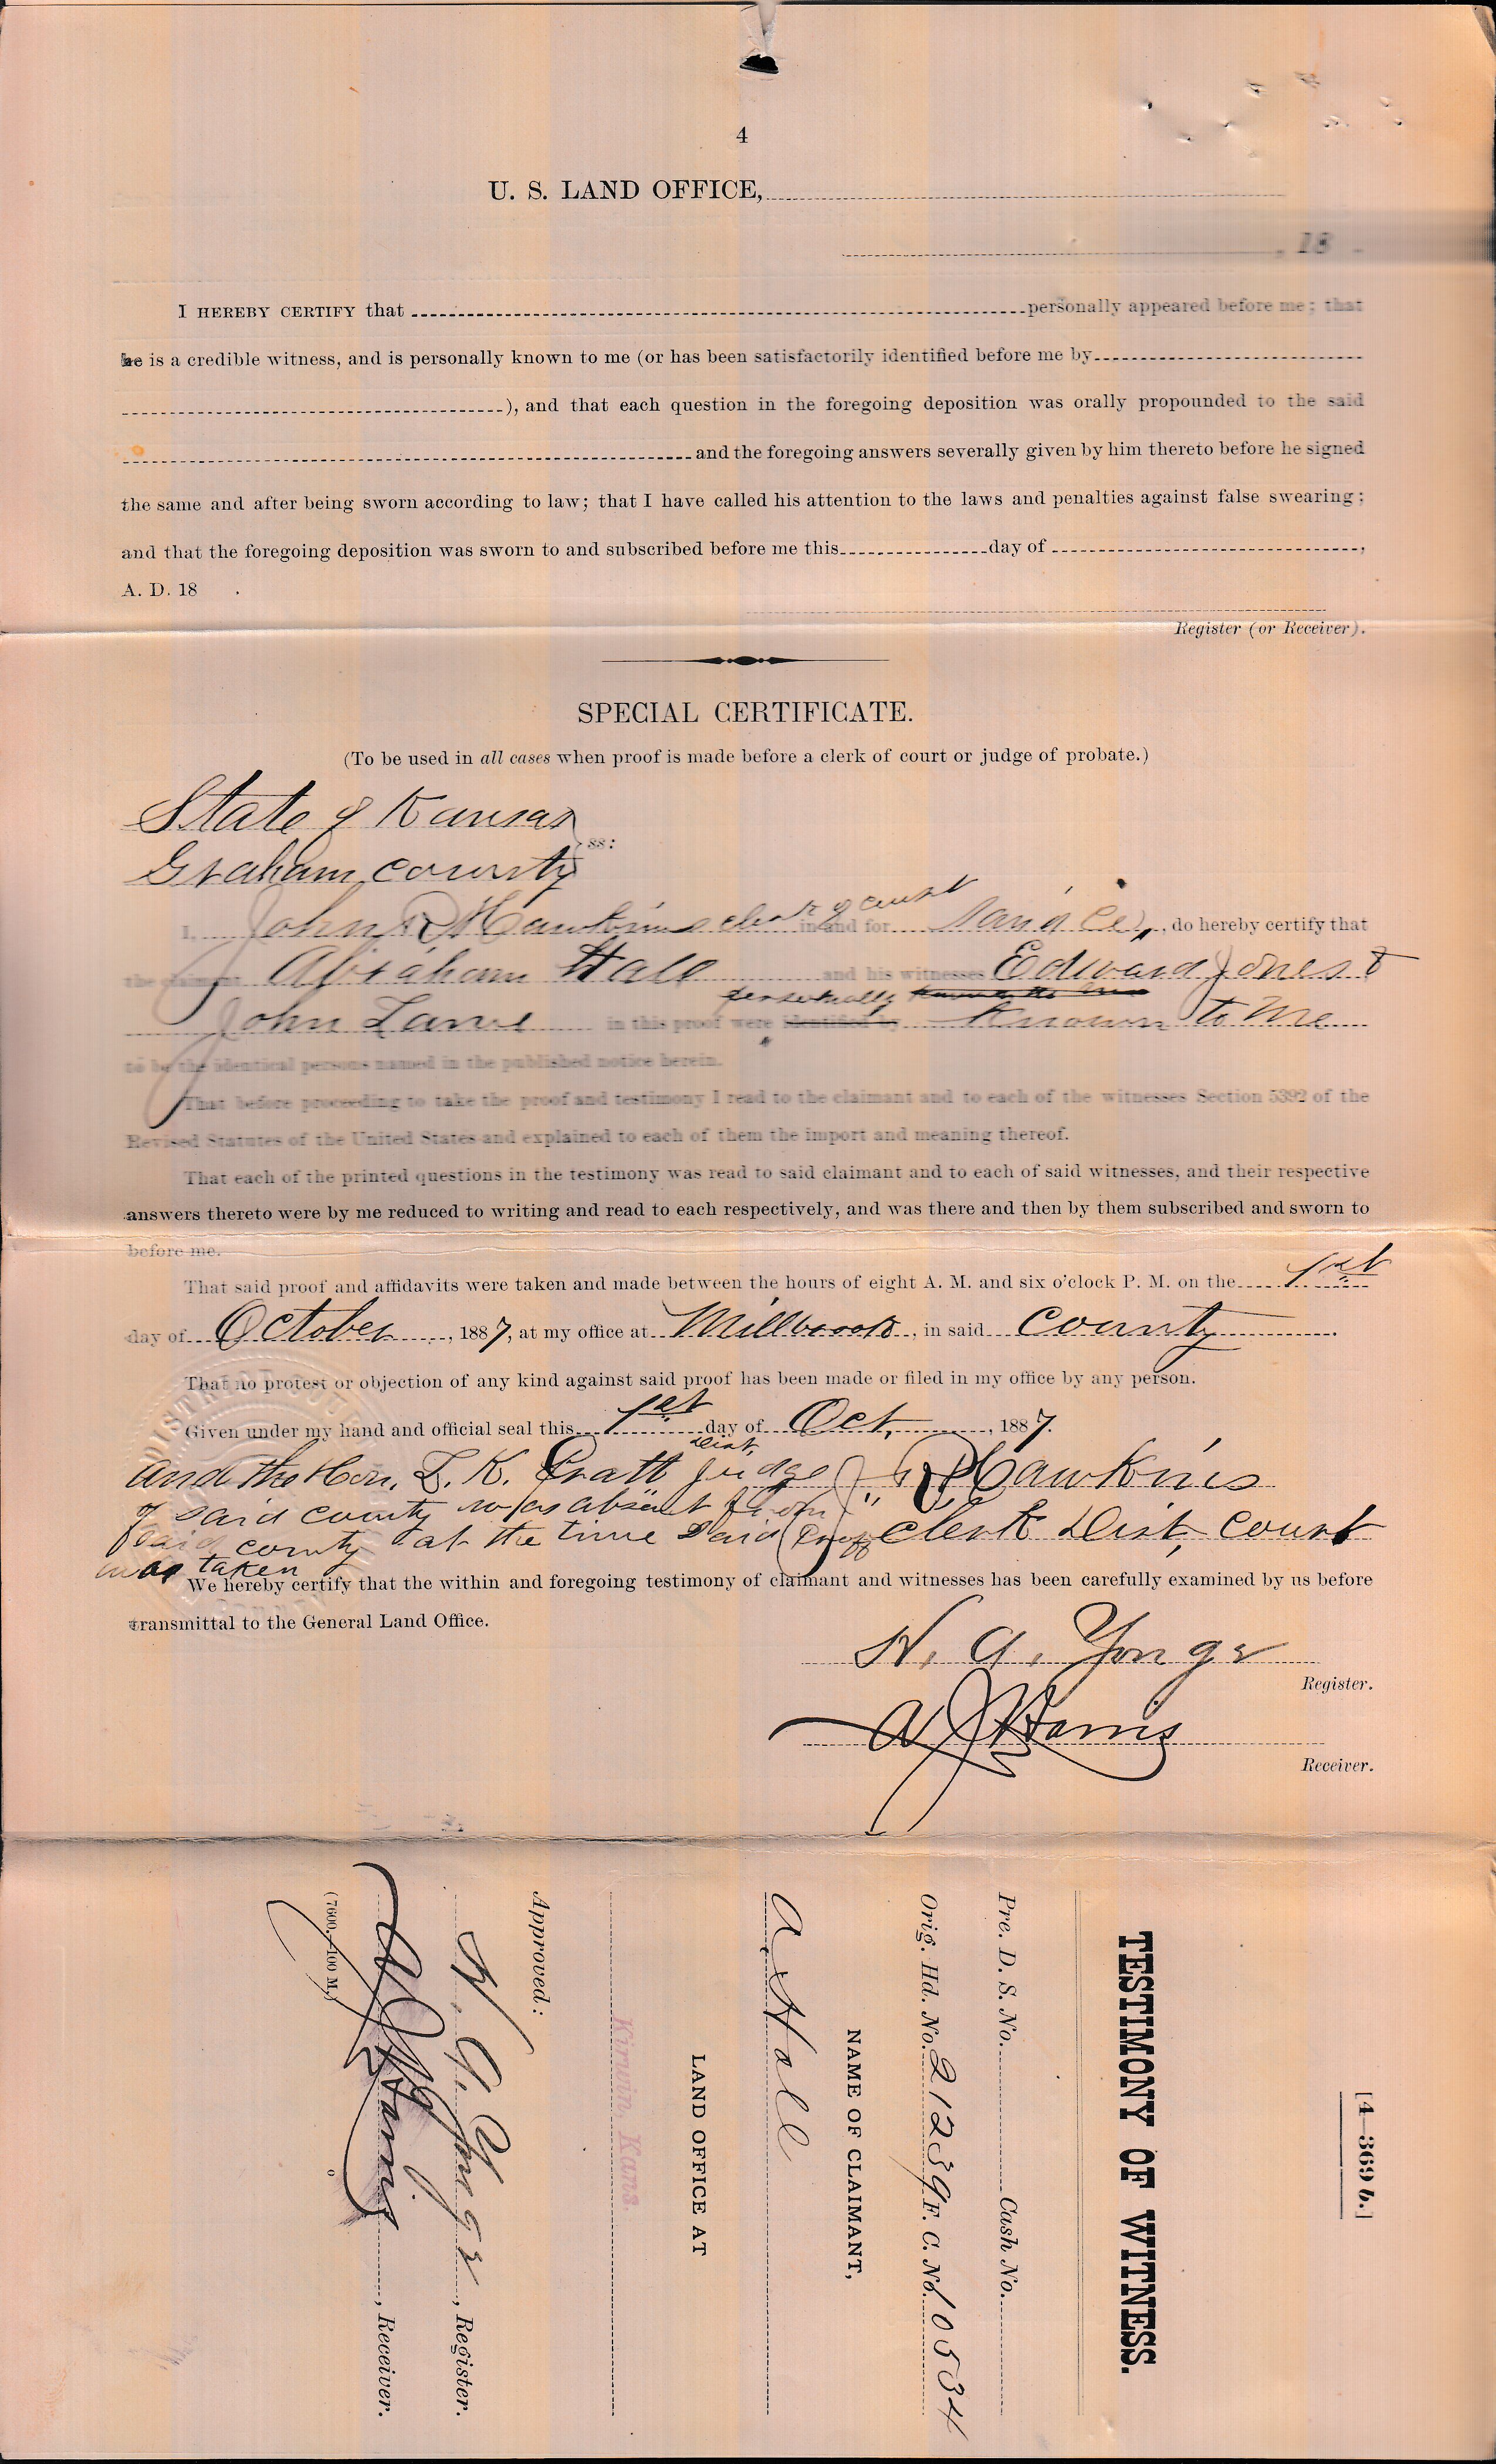 4
U. S. LAND OFFICE,
, 18 .
I HEREBY CERTIFY that personally appeared before me; that
he is a credible witness, and is personally known to me (or has been satisfactorily identified before me by
), and that each question in the foregoing deposition was orally propounded to the said
and the foregoing answers severally given by him thereto before he signed
the same and after being sworn according to law; that I have called his attention to the laws and penalties against false swearing;
and that the foregoing deposition was sworn to and subscribed before me this day of ,
A. D. 18 .
Register (or Receiver).
SPECIAL CERTIFICATE.
(To be used in all cases when proof is made before a clerk of court or judge of probate.)
State of Kansas
Graham County } ss:
I, John R Hawkins clerk of court in and for said Co, do hereby certify that
the claimant Abraham Hall and his witnesses Edward Jones &
personally known to me
John Lane in this proof were identified by Known to Me
to be the identical persons named in the published notice herein.
That before proceeding to take the proof and testimony I read to the claimant and to each of the witnesses Section 5392 of the
Revised Statutes of the United States and explained to each of them the import and meaning thereof.
That each of the printed questions in the testimony was read to said claimant and to each of said witnesses, and their respective
answers thereto were by me reduced to writing and read to each respectively, and was there and then by them subscribed and sworn to
before me.
That said proof and affidavits were taken and made between the hours of eight A. M. and six o'clock P. M. on the 1st
day of October, 1887, at my office at Millbrook, in said County.
That no protest or objection of any kind against said proof has been made or filed in my office by any person.
Given under my hand and official seal this 1st day of Oct, 1887.
and the Hon. L. K. Pratt Dist, judge
of said county was absent from
said county at the time said proof
was taken
J R Hawkins
Clerk Dist, Court
We hereby certify that the within and foregoing testimony of claimant and witnesses has been carefully examined by us before
transmittal to the General Land Office.
W. A. Yonge
Register.
W J Harris
Receiver.
[4—369 b.]
TESTIMONY OF WITNESS.
Pre. D. S. No. Cash No.
Orig. Hd. No. 21239 F. C. No. 10534
NAME OF CLAIMANT,
A Hall
LAND OFFICE AT
Kirwin, Kans.
Approved:
W. A. Yonge, Register.
W J Harris, Receiver.
(7600—100 M.)